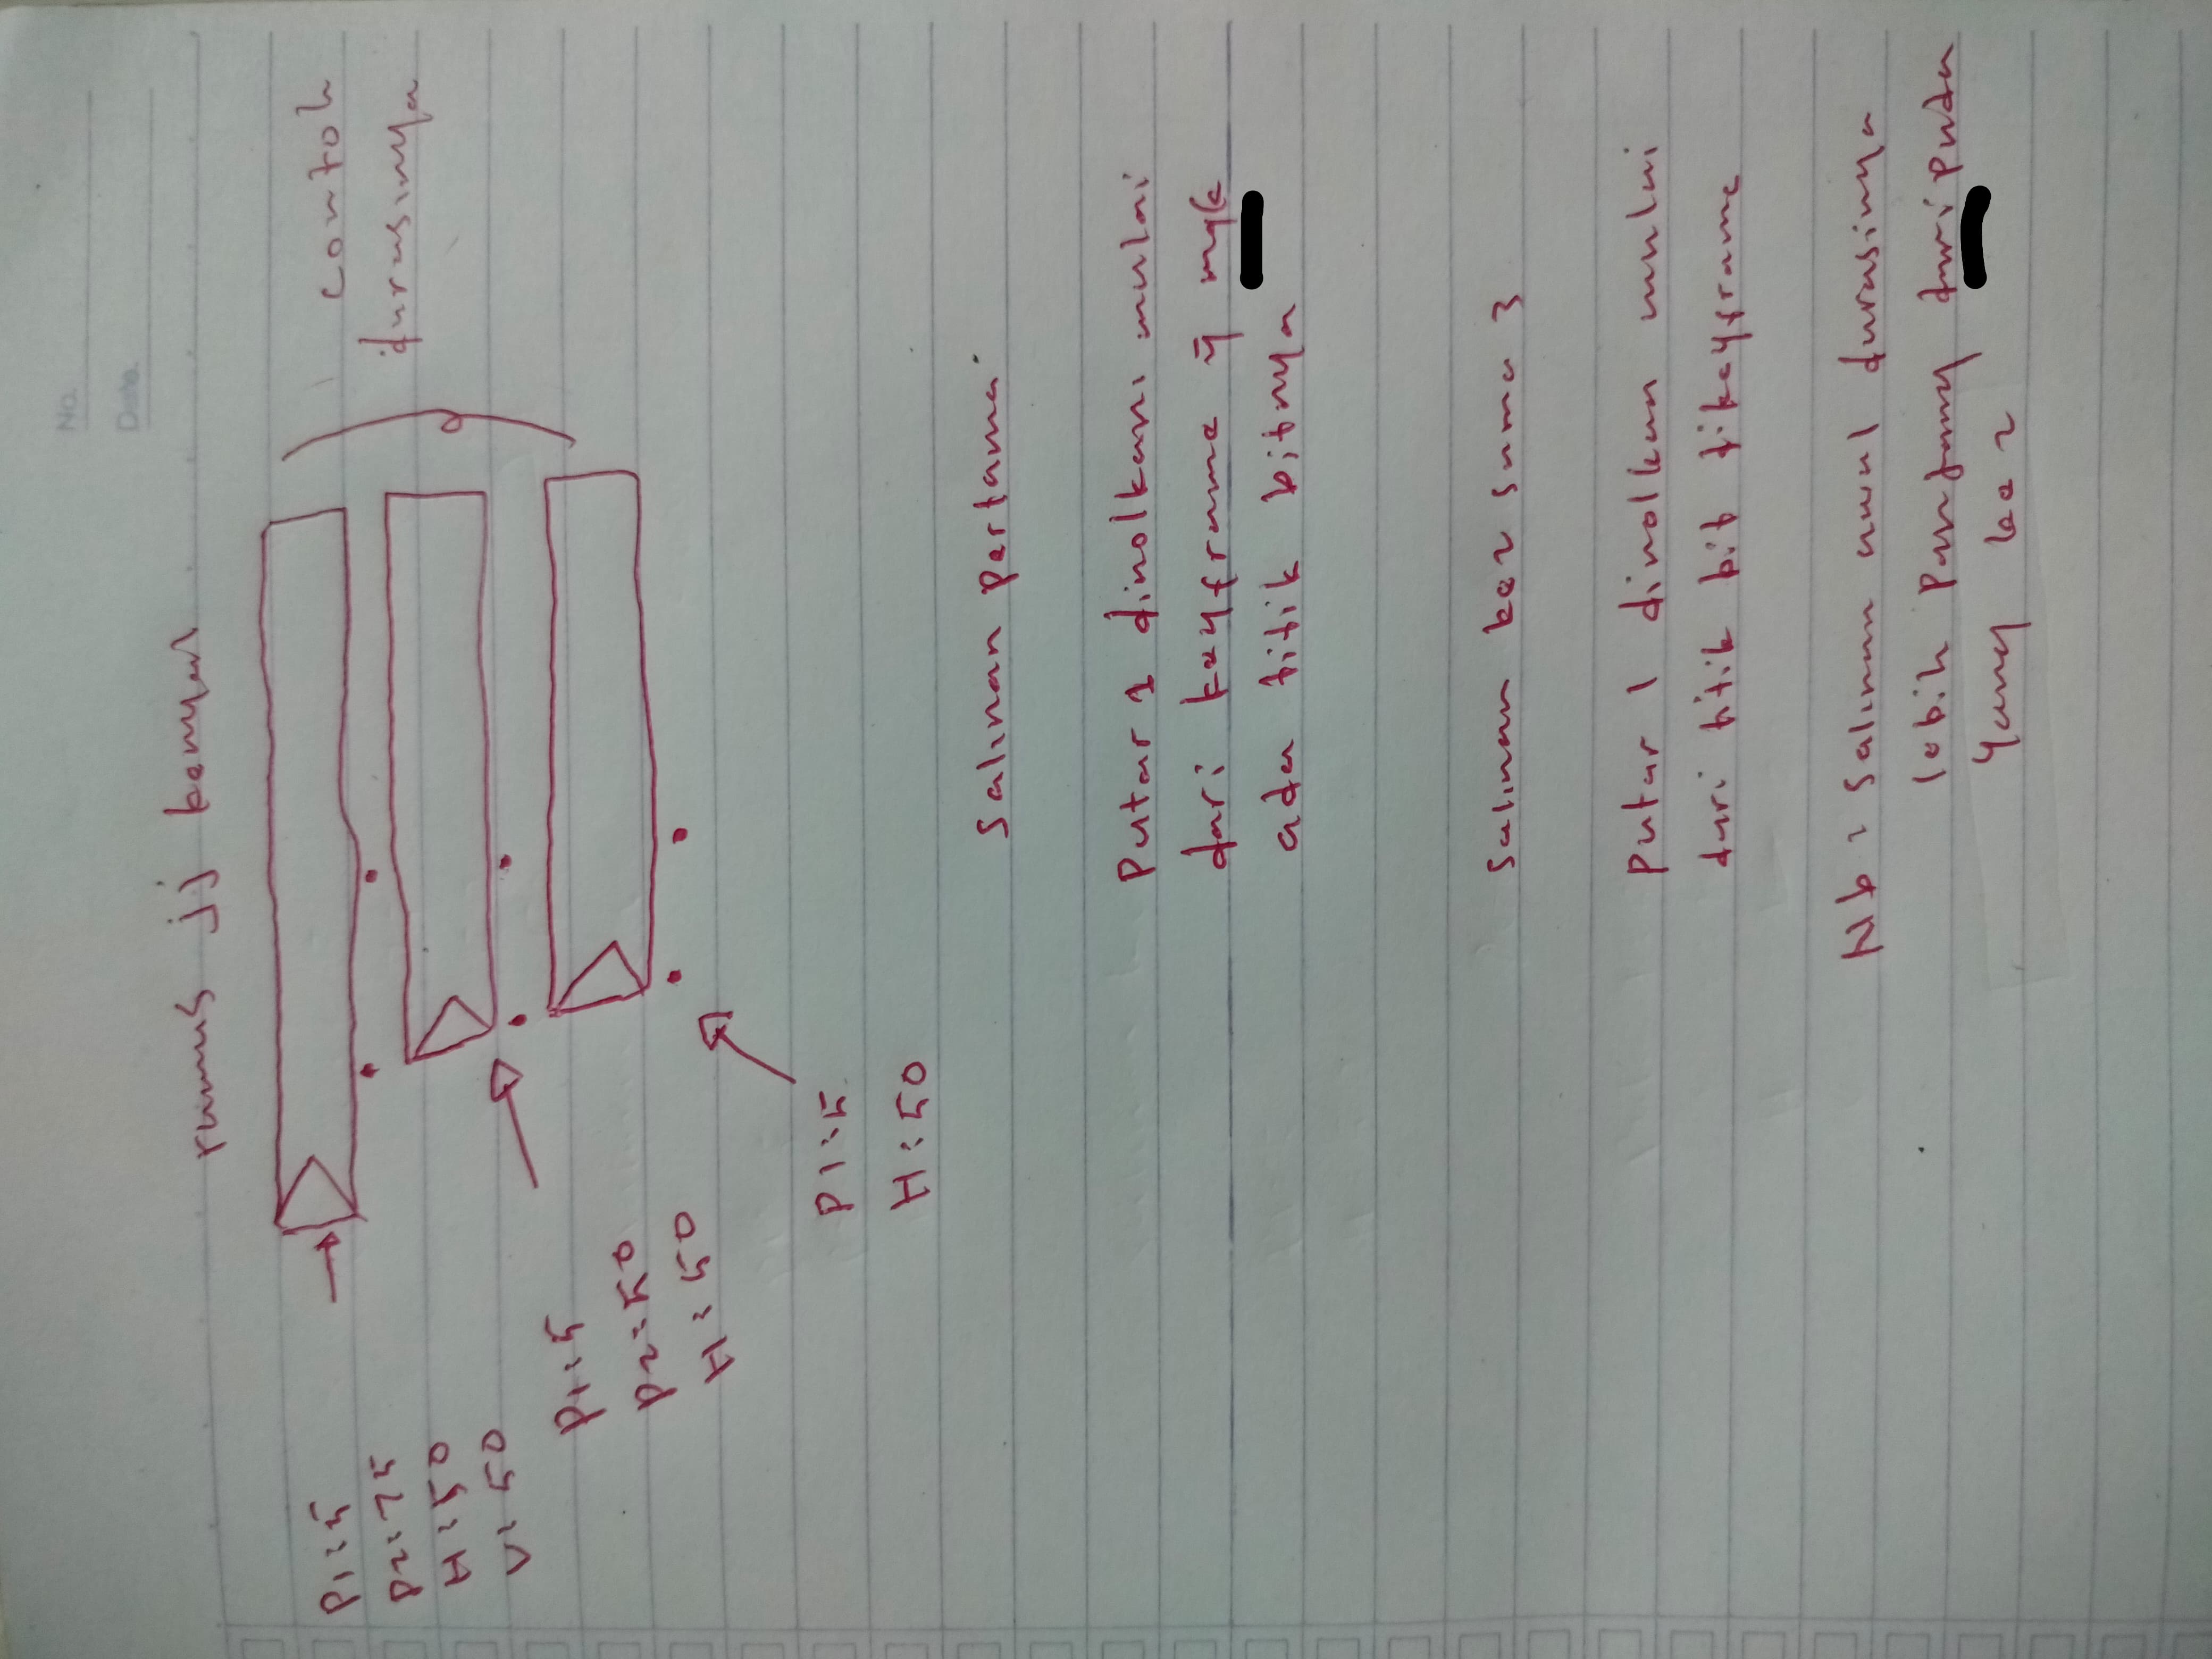 No.
Date
rumus jj kenyal
Contoh
durasinya
P1:5
P2:75
H:50
V:50
P1:5
P2:50
H:50
P1:5
H:50
Salinan pertama
Putar 1 dinolkan mulai
dari keyframe y
ada titik bitnya
Salinan ke2 sama 3
Putar 1 dinolkan mulai
dari titik bit dikeyframe
Nb : Salinan awal durasinya
lebih panjang daripada
yang ke 2